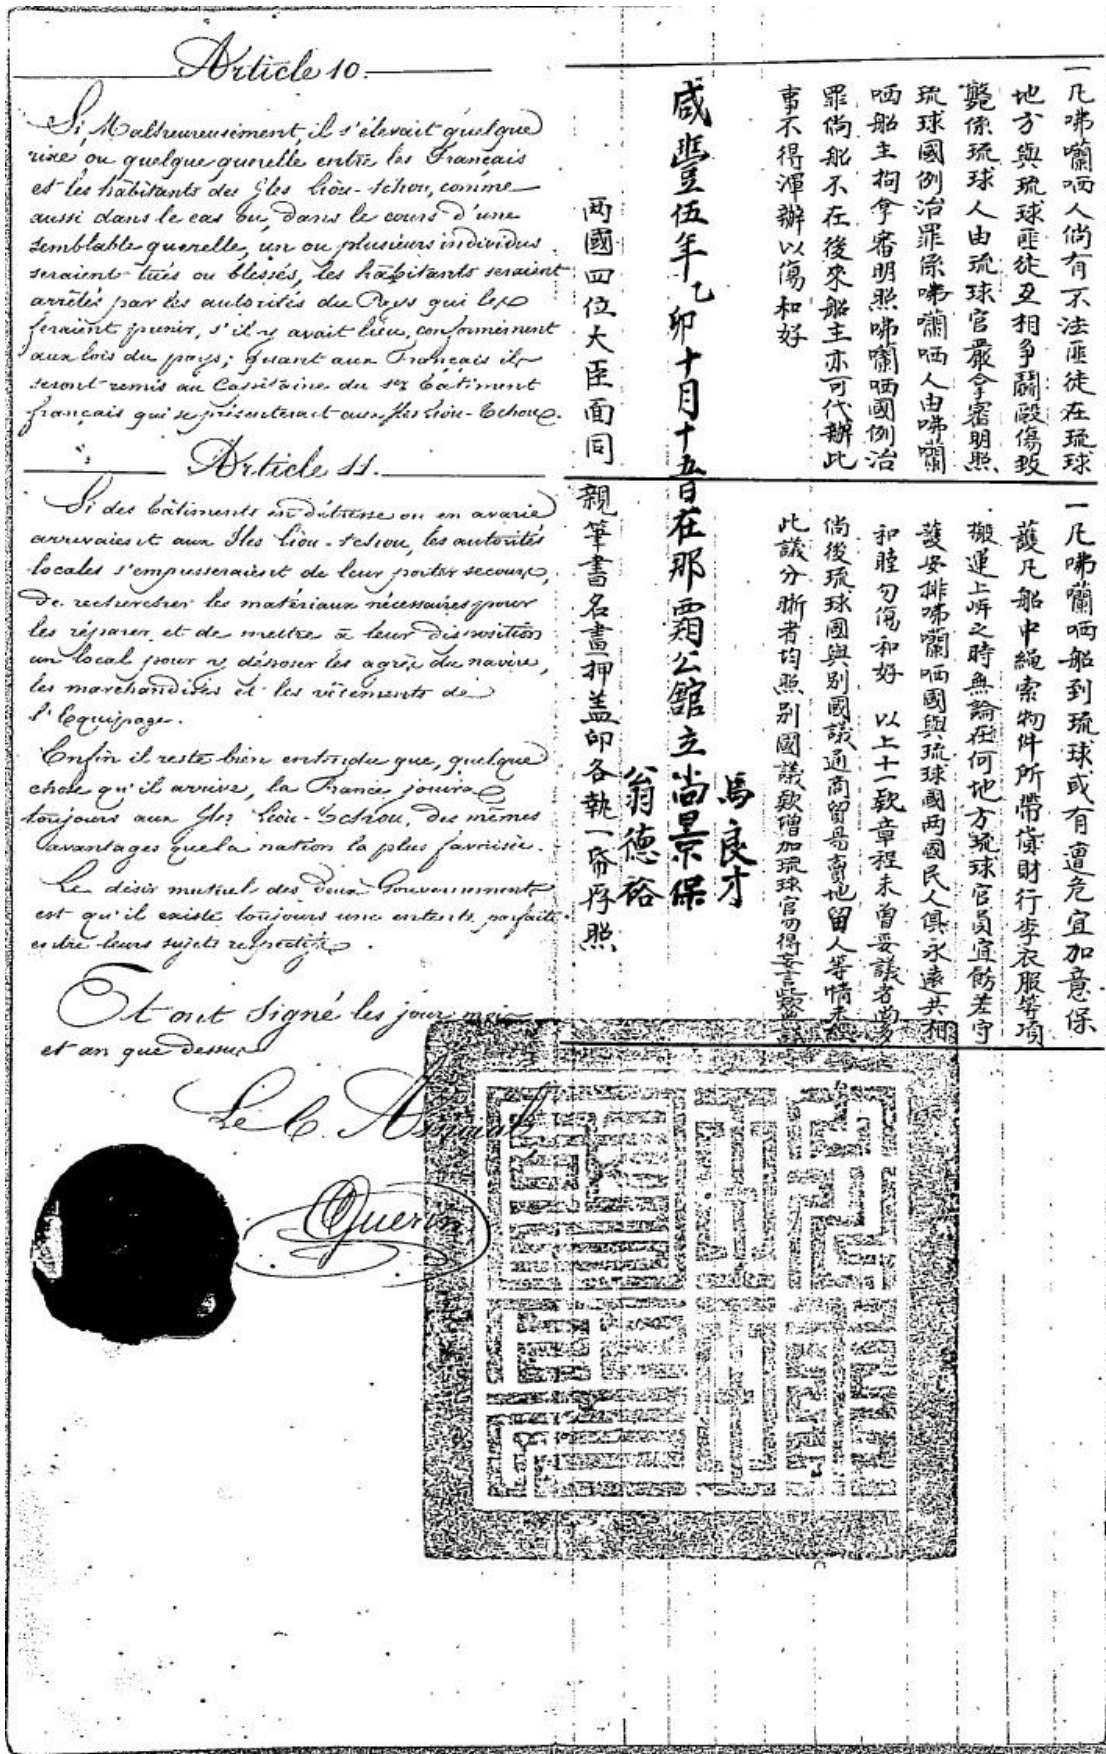 Article 10.
Si, Malheureusement, il s'élevait quelque
rixe ou quelque querelle entre les Français
et les habitants des Iles Liou-tchou, comme
aussi dans le cas où, dans le cours d'une
semblable querelle, un ou plusieurs individus
seraient tués ou blessés, les habitants seraient
arrêtés par les autorités du Pays qui les
feraient punir, s'il y avait lieu, conformément
aux lois du pays; quant aux Français ils
seront remis au Capitaine du 1er bâtiment
français qui se présenterait aux Iles Liou-tchou.
Article 11.
Si des bâtiments en détresse ou en avarie
arrivaient aux Iles Liou-tchou, les autorités
locales s'empresseraient de leur porter secours,
de rechercher les matériaux nécessaires pour
les réparer et de mettre à leur disposition
un local pour y déposer les agrès du navire,
les marchandises et les vêtements de
l'Equipage.
Enfin il reste bien entendu que, quelque
chose qu'il arrive, la France jouira
toujours aux Iles Liou-Tchou, des mêmes
avantages que la nation la plus favorisée.
Le désir mutuel des deux Gouvernements
est qu'il existe toujours une entente parfaite
entre leurs sujets respectifs.
Et ont signé les jour, mois
et an que dessus
Le C. Amiral
Guerin
一凡咈囒哂人倘有不法匪徒在琉球
地方與琉球匪徒互相爭鬪毆傷致
斃係琉球人由琉球官嚴拿審明照
琉球國例治罪係咈囒哂人由咈囒
哂船主拘拿審明照咈囒哂國例治
罪倘船不在後來船主亦可代辦此
事不得渾辦以傷和好
一凡咈囒哂船到琉球或有遭危宜加意保
護凡船中繩索物件所帶貨財行李衣服等項
搬運上岸之時無論在何地方琉球官員宜飭差守
護安排咈囒哂國與琉球國両國民人俱永遠共相
和睦勿傷和好 以上十一欵章程未曾妥議者
倘後琉球國與別國議通商貿易賣地留人等情未
此議分晰者均照別國議欵增加琉球官勿得妄言
咸豐伍年乙卯十月十五日在那霸公舘立
馬良才
尚景保
翁德裕
両國四位大臣面同親筆書名畫押盖印各執一帋存照